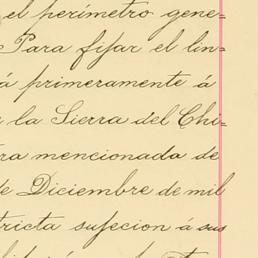 el perímetro gene=
Para fijar el lin=
á primeramente á
la Sierra del Chi=
ra mencionada de
de Diciembre de mil
tricta sujecion á sus